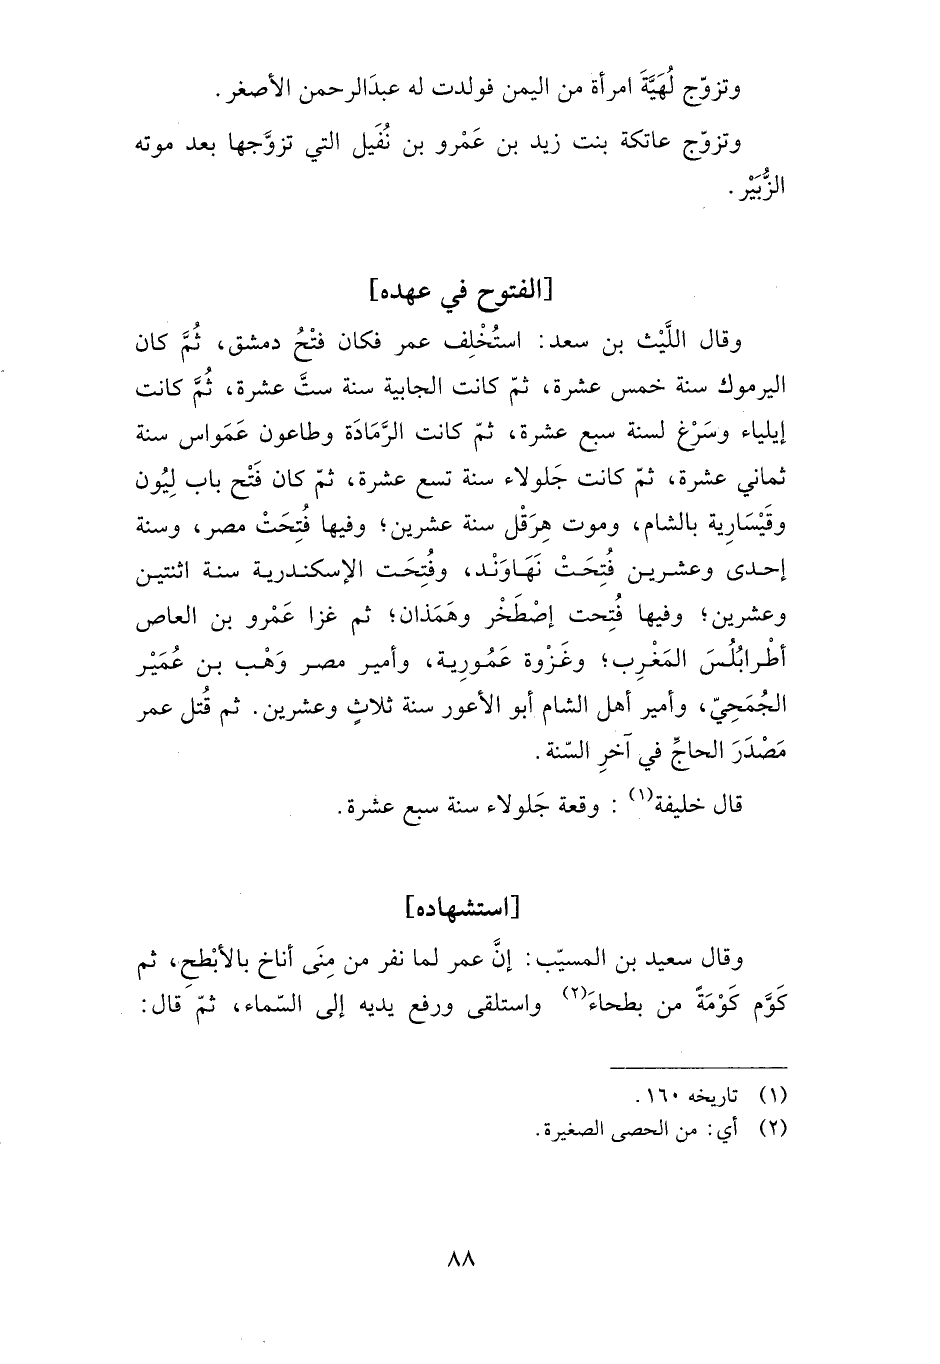 وتزوّج لُهَيَّةَ امرأة من اليمن فولدت له عبدَالرحمن الأصغر.
وتزوّج عاتكة بنت زيد بن عَمْرو بن نُفَيل التي تزوَّجها بعد موته
الزُّبَيْر.
[الفتوح في عهده]
وقال اللَّيْث بن سعد: استُخْلِف عمر فكان فتْحُ دمشق، ثُمَّ كان
اليرموك سنة خمس عشرة، ثمّ كانت الجابية سنة ستَّ عشرة، ثُمَّ كانت
إيلياء وسَرْغ لسنة سبع عشرة، ثمّ كانت الرَّمَادَة وطاعون عَمَواس سنة
ثماني عشرة، ثمّ كانت جَلولاء سنة تسع عشرة، ثمّ كان فَتْح باب لِيُون
وقَيْسَارِية بالشام، وموت هِرَقْل سنة عشرين؛ وفيها فُتِحَتْ مصر، وسنة
إحدى وعشرين فُتِحَتْ نَهَاوَنْد، وفُتِحَت الإسكندرية سنة اثنتين
وعشرين؛ وفيها فُتِحت إصْطَخْر وهَمَذان؛ ثم غزا عَمْرو بن العاص
أطْرابُلُسَ المَغْرِب؛ وغَزْوة عَمُورية، وأمير مصر وَهْب بن عُمَيْر
الجُمَحِيّ، وأمير أهل الشام أبو الأعور سنة ثلاثٍ وعشرين. ثم قُتل عمر
مَصْدَرَ الحاجِّ في آخرِ السّنة.
قال خليفة(١): وقعة جَلولاء سنة سبع عشرة.
[استشهاده]
وقال سعيد بن المسيّب: إنَّ عمر لما نفر من مِنَى أناخ بالأبْطحِ، ثم
كَوَّم كَوْمَةً من بطحاءَ(٢) واستلقى ورفع يديه إلى السّماء، ثمّ قال:
(١) تاريخه ١٦٠.
(٢) أي: من الحصى الصغيرة.
٨٨